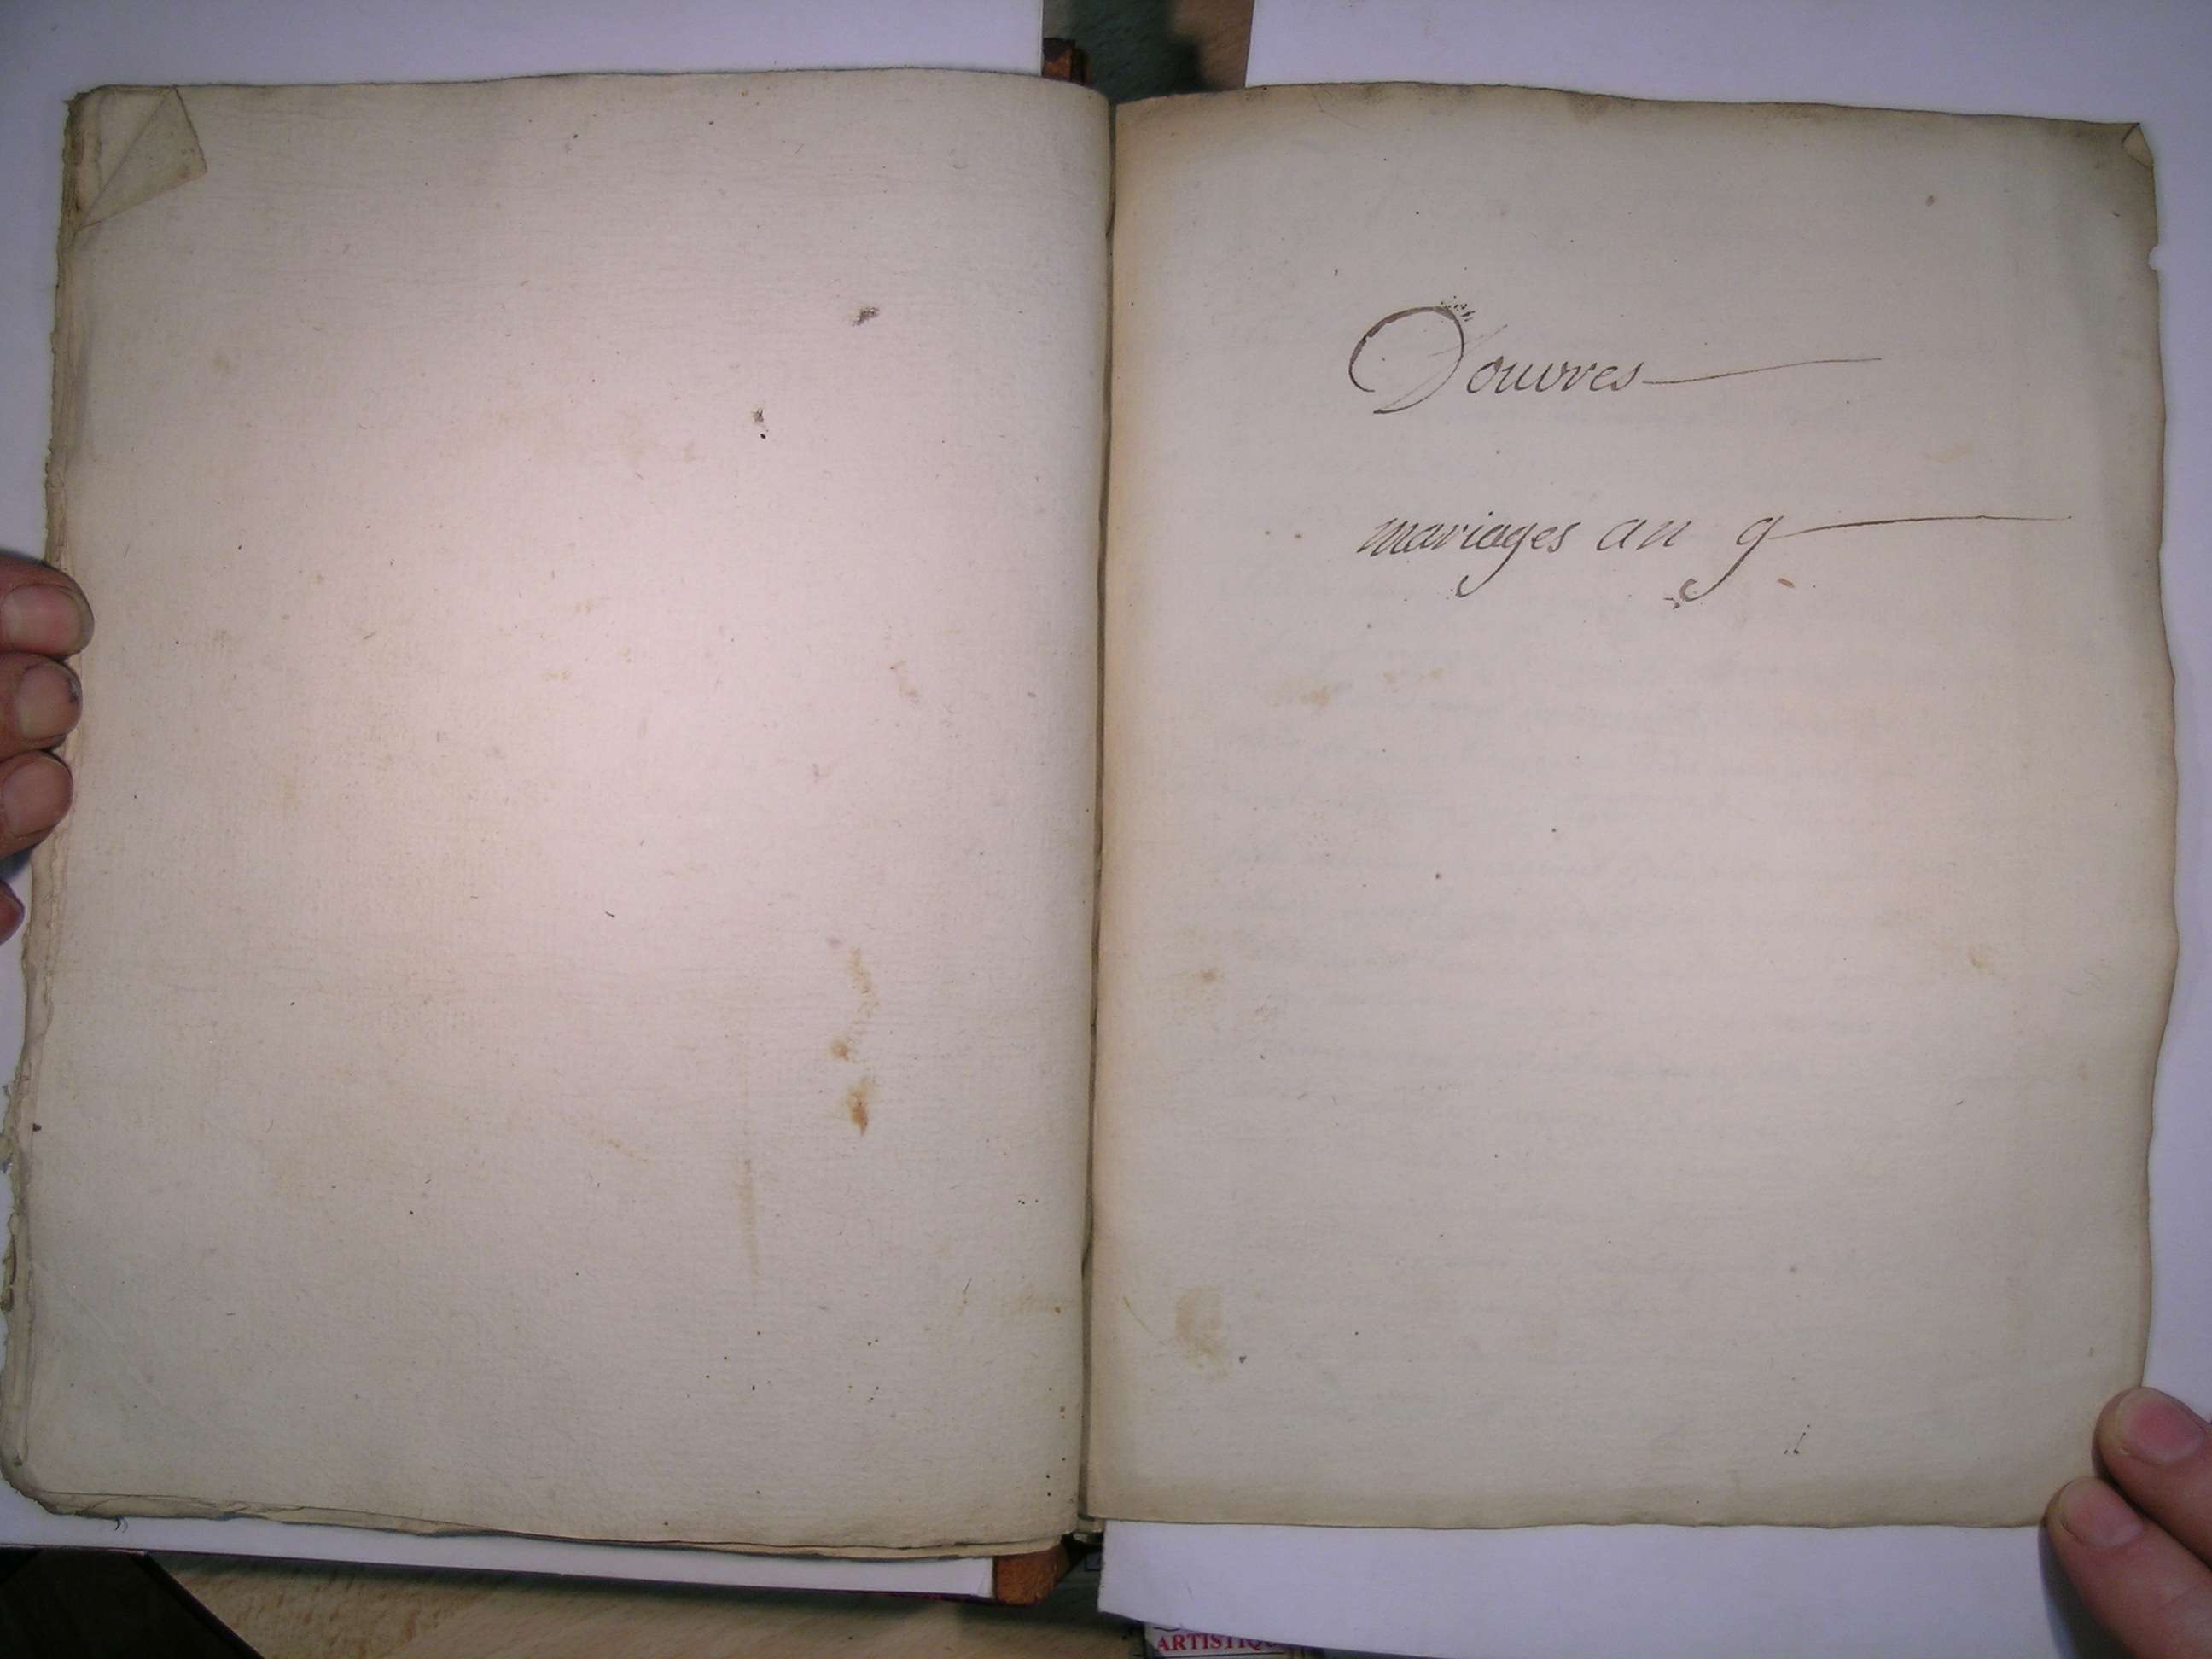 Douvres
mariages an 9
ARTISTIQU